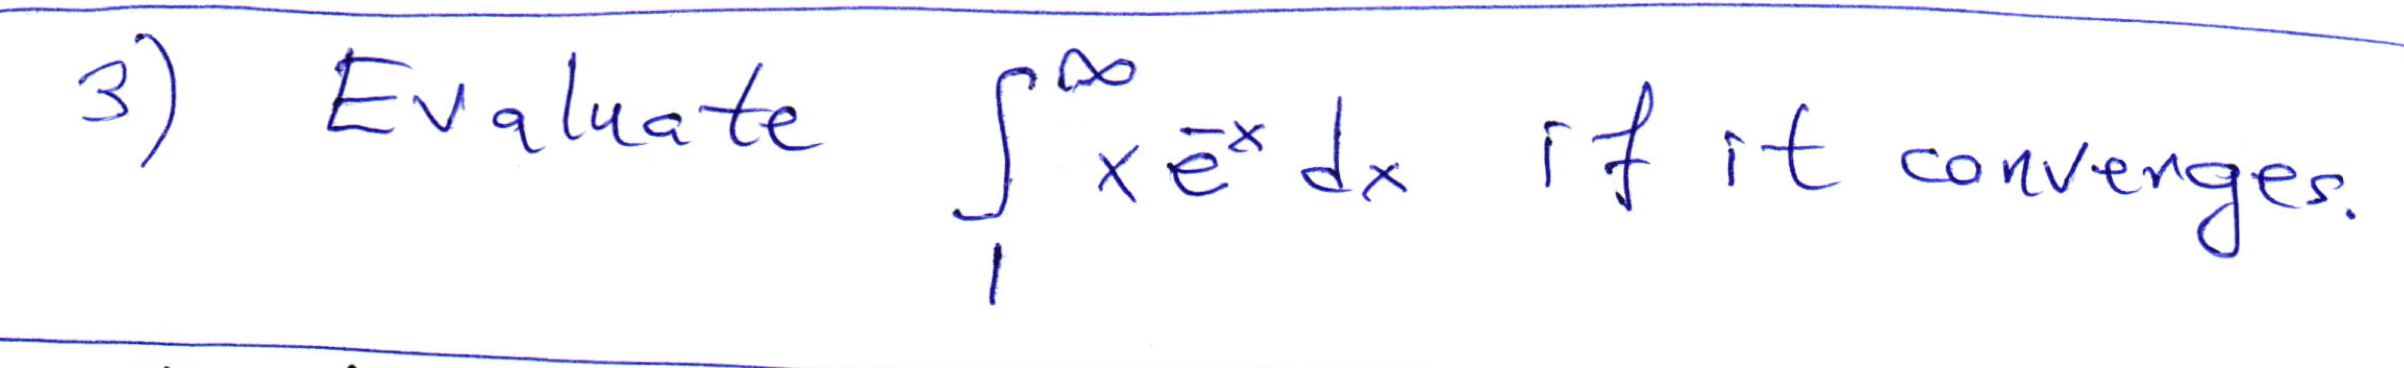 3) Evaluate ∫₁^∞ x e^{-x} dx if it converges.